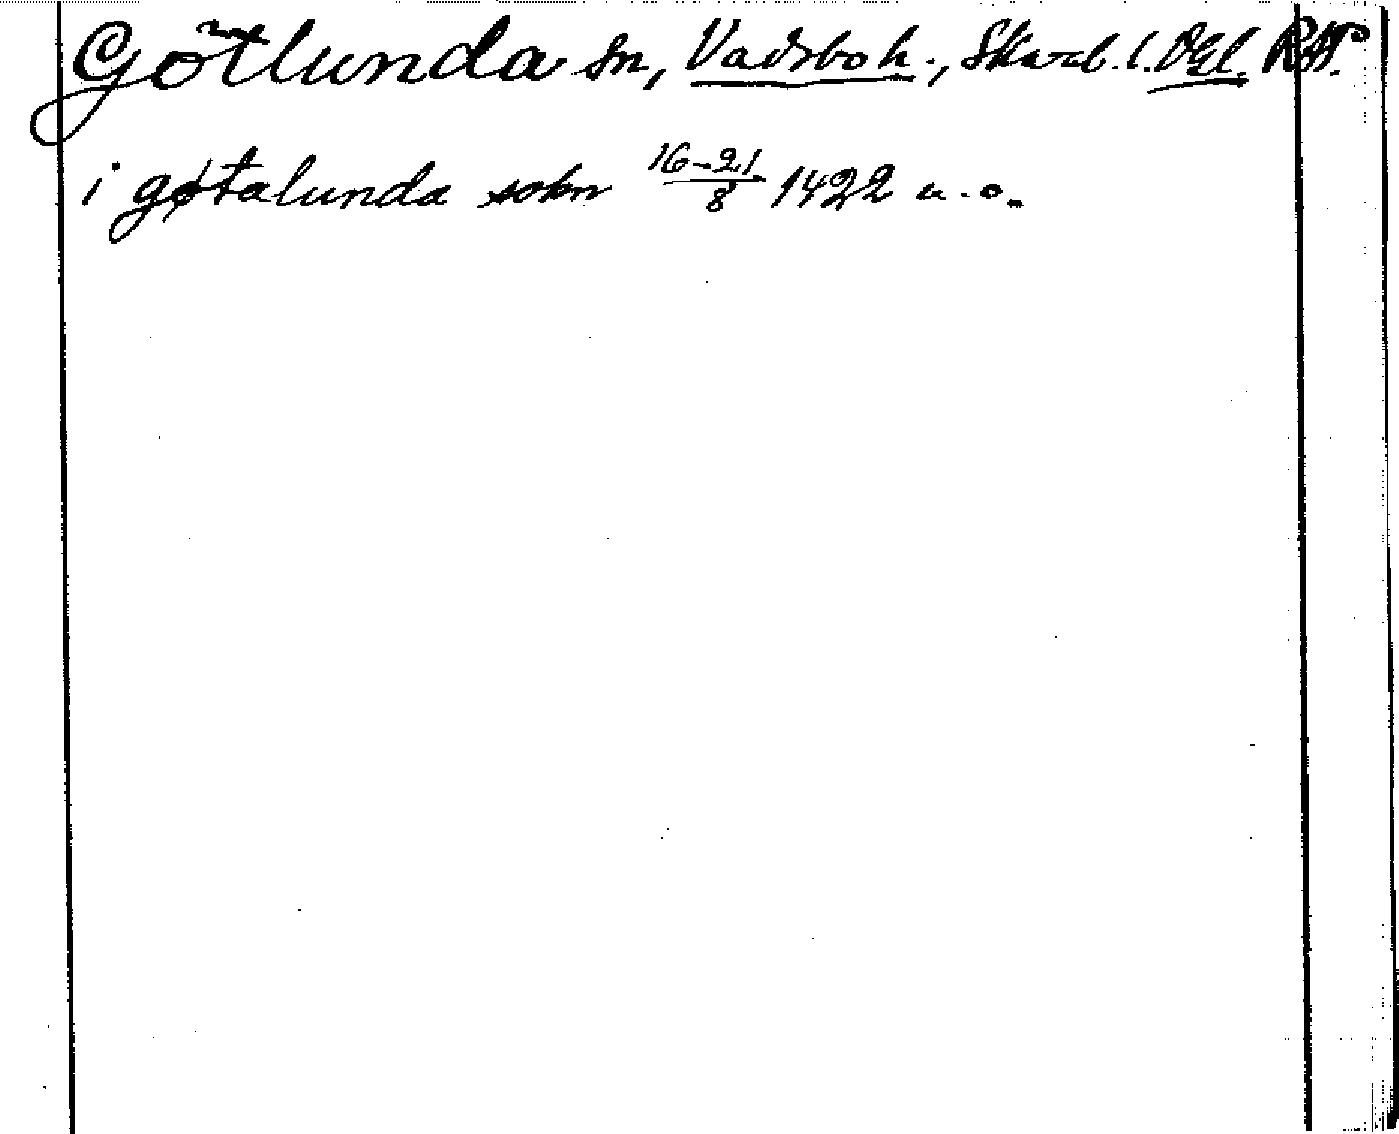 Götlunda sn, Vadsbo h., Skarab. l. Vgl. RAP.
i gøtalunda sokn 16-21/8 1422 u.o.